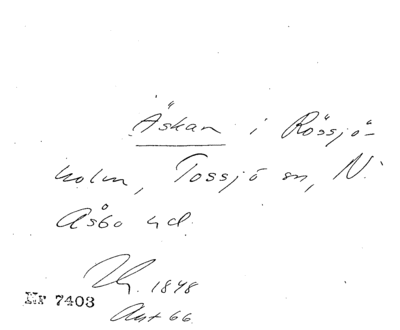 Äskan i Rössjö-
holm, Tossjö sn, N.
Åsbo hd.
1848
Nr 7403
Ant 66